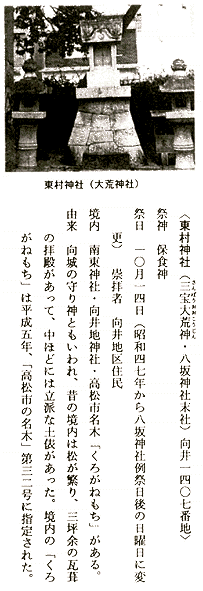 東村神社（大荒神社）
〈東村神社（三宝大荒神・八坂神社末社）向井一四〇七番地〉
さんぽうおおこうじん
祭神　保食神
祭日　一〇月一四日（昭和四七年から八坂神社例祭日後の日曜日に変
更）　崇拝者　向井地区住民
境内　南東神社・向井地神社・高松市名木「くろがねもち」がある。
由来　向城の守り神ともいわれ、昔の境内は松が繁り、三坪余の瓦葺
の拝殿があって、中ほどには立派な土俵があった。境内の「くろ
がねもち」は平成五年、「高松市の名木」第三二号に指定された。